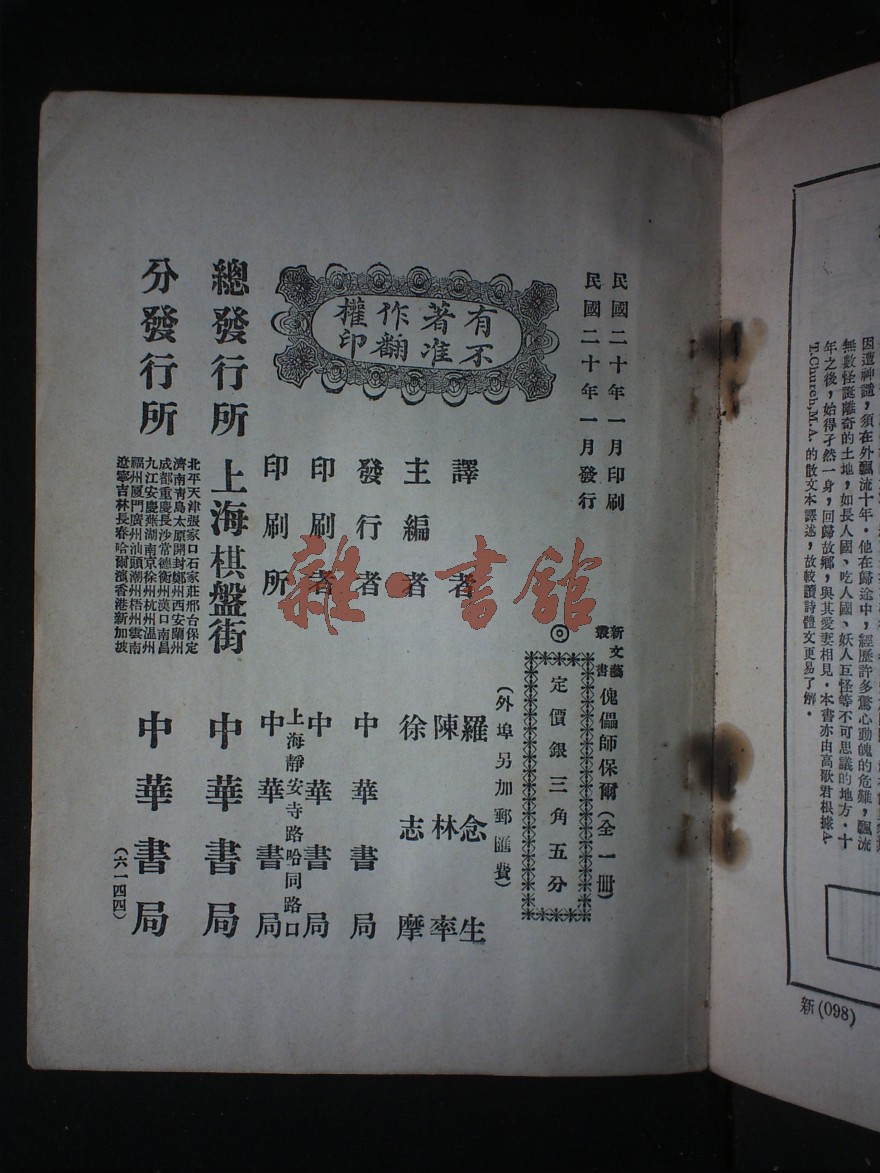 民國二十年一月印刷
民國二十年一月發行
新文藝叢書 傀儡師保爾（全一冊）
◎定價銀三角五分
（外埠另加郵匯費）
有著作權
不准翻印
譯者 羅念生
陳林率
主編者 徐志摩
發行者 中華書局
印刷者 中華書局
上海靜安寺路哈同路口
印刷所 中華書局
總發行所 上海棋盤街 中華書局
分發行所
北平天津張家口石家莊邢台保定
濟南青島太原開封鄭州西安蘭州
成都重慶長沙常德衡州漢口南昌
九江安慶蕪湖南京徐州杭州溫州
福州厦門廣州汕頭潮州梧州雲南
遼寧吉林長春哈爾濱香港新加坡
中華書局
（六一四四）
雜·書舘
因遭神譴，須在外飄流十年。他在歸途中，經歷許多驚心動魄的危難，飄流
無數怪誕離奇的土地，如長人國、吃人國、妖人巨怪等不可思議的地方。十
年之後，始得孑然一身，回歸故鄉，與其愛妻相見。本書亦由高歌君根據A.
T.Church,M.A.的散文本譯述，故較讀詩體文更易了解。
新(098)